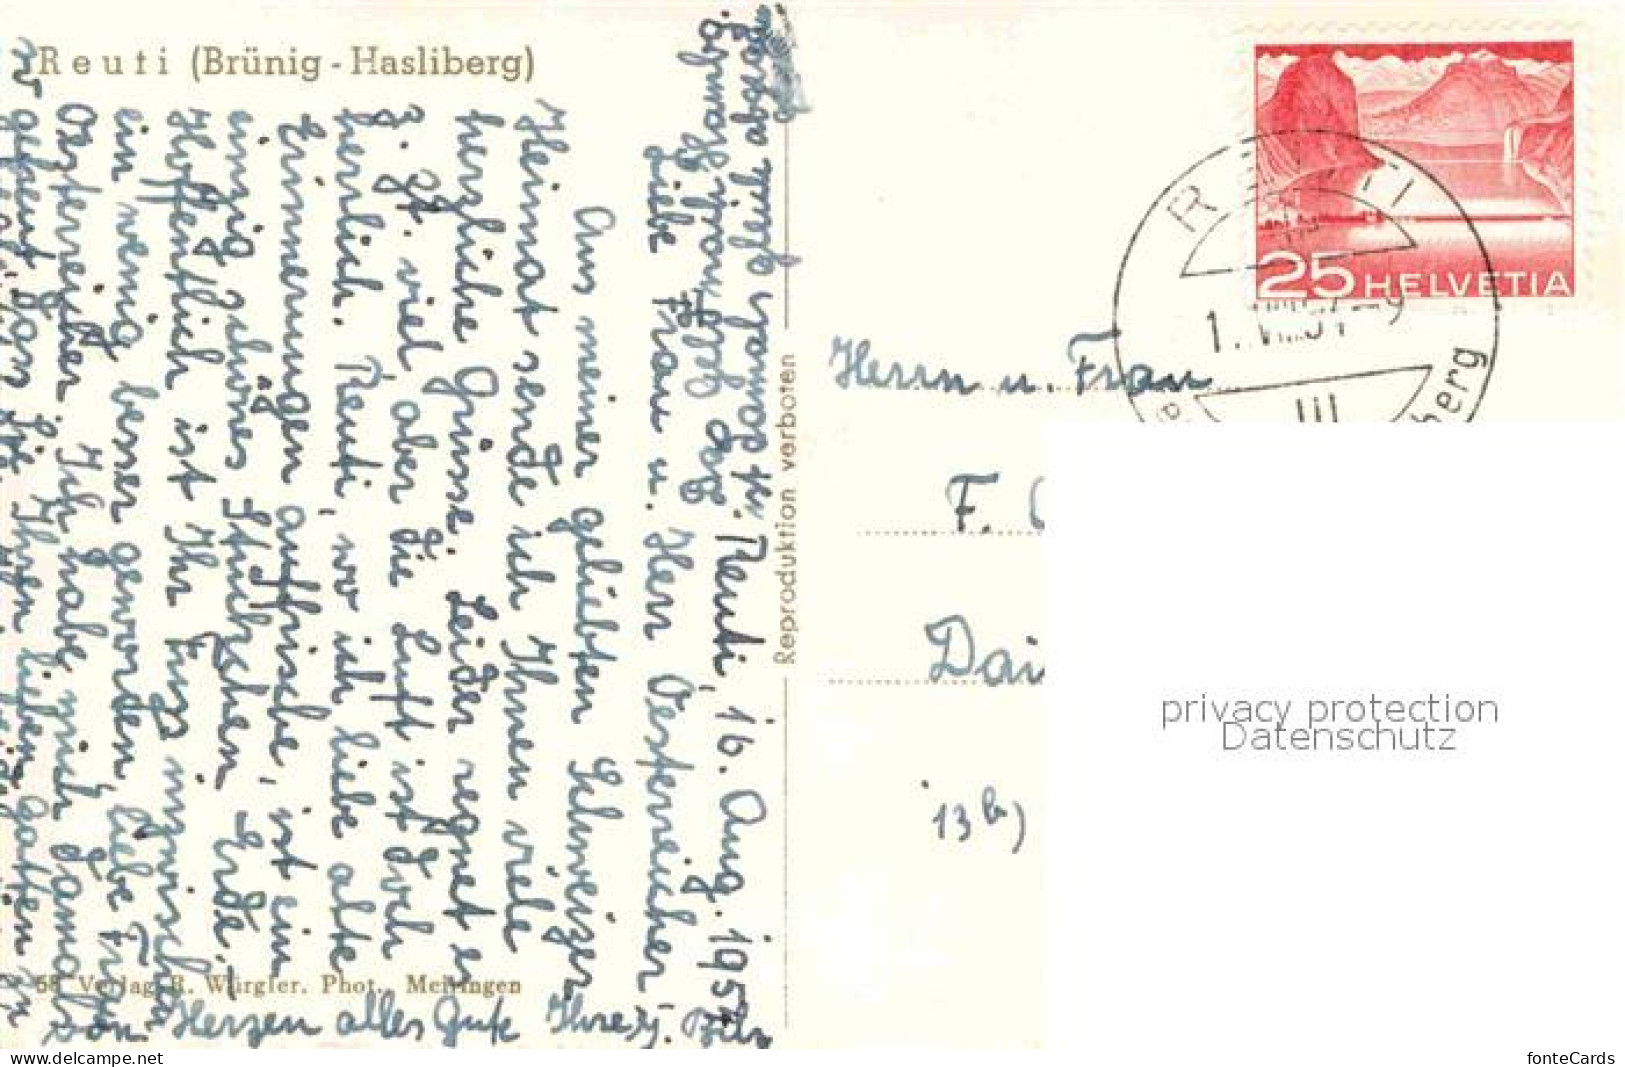 Reuti (Brünig - Hasliberg)
Reuti, 16. Aug. 1954
Liebe Frau u. Herr Oesterreicher!
Aus meiner geliebten Schweizer
Heimat sende ich Ihnen viele
herzliche Grüsse. Leider regnet es
z. Zt. viel, aber die Luft ist doch
herrlich. Reuti, wo ich liebe alte
Erinnerungen auffrische, ist ein
einzig schönes Stückchen Erde.
Hoffentlich ist Ihr Fuss inzwischen
ein wenig besser geworden, liebe Frau
Oesterreicher. Ich habe mich damals
so gefreut, dass Sie Ihren lieben Gatten
von Herzen alles Gute Ihre
damals gleich
Reproduktion verboten
58 Verlag R. Würgler, Phot., Meiringen
25 HELVETIA
REUTI
Herrn u. Frau
F.
Dai
13b)
privacy protection
Datenschutz
www.delcampe.net
fonteCards